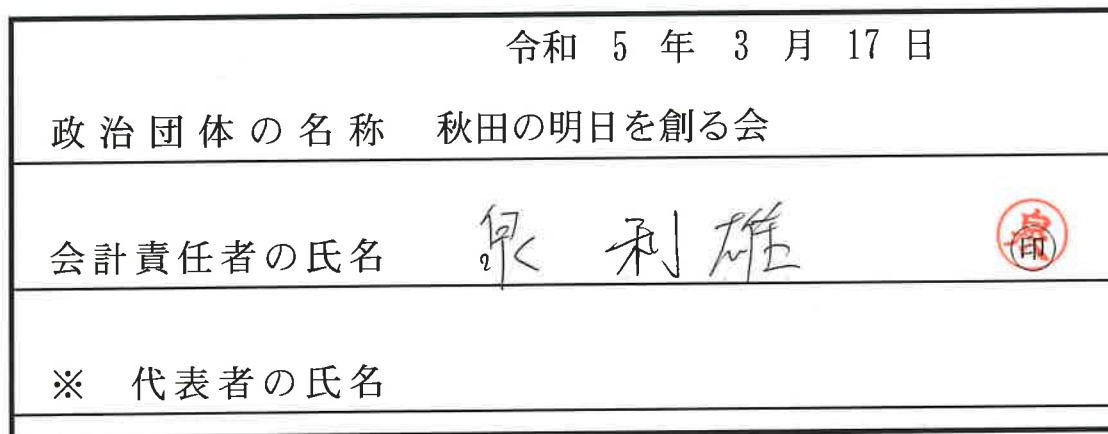 令和 5 年 3 月 17 日
政治団体の名称 秋田の明日を創る会
会計責任者の氏名 泉 利雄 印
※ 代表者の氏名